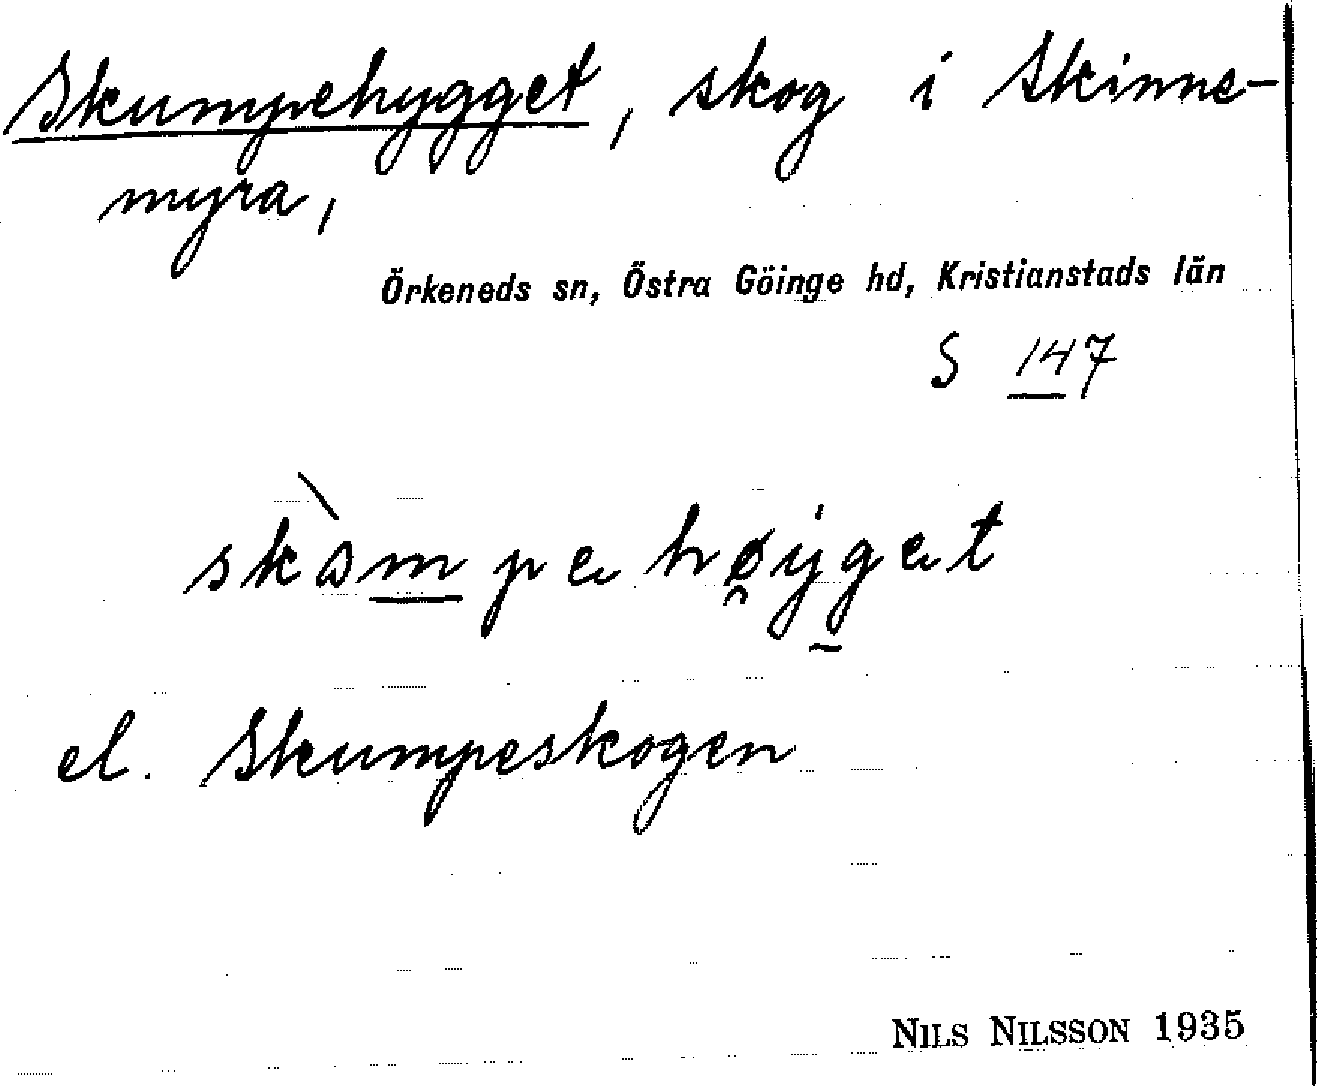 Skumpehygget, skog i Skinne-
myra,
Örkeneds sn, Östra Göinge hd, Kristianstads län
S 147
el. Skumpeskogen
NILS NILSSON 1935